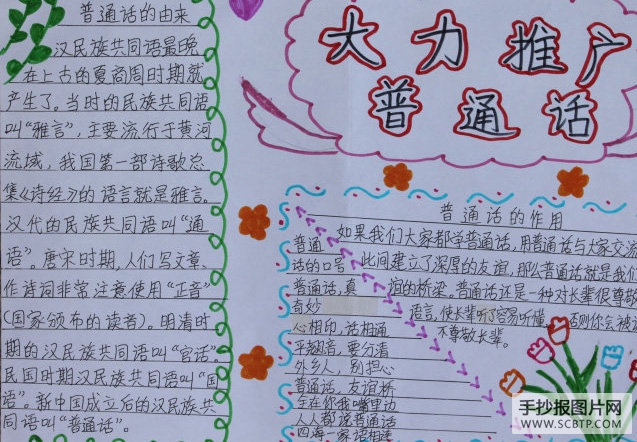 普通话的由来
汉民族共同语最晚
在上古的夏商周时期就
产生了。当时的民族共同语
叫“雅言”,主要流行于黄河
流域,我国第一部诗歌总
集《诗经》的语言就是雅言。
汉代的民族共同语叫“通
语”。唐宋时期,人们写文章、
作诗词非常注意使用“正音”
(国家颁布的读者)。明清时
期的汉民族共同语叫“官话”。
民国时期汉民族共同语叫“国
语”。新中国成立后的汉民族共
同语叫“普通话”。
大力推广
普通话
普通话的作用
如果我们大家都学普通话,用普通话与大家交流
此间建立了深厚的友谊,那么普通话就是我们
谊的桥梁。普通话还是一种对长辈很尊敬
语言,使长辈听了容易听懂,否则你会被
不尊敬长辈。
普通
话的口号
普通话,真
奇妙
心相印,话相通
平翘音,要分清
外乡人,别担心
普通话,友谊桥
全在你我嘴里边
人人都说普通话
四海一家语相连
手抄报图片网
WWW.SCBTP.COM